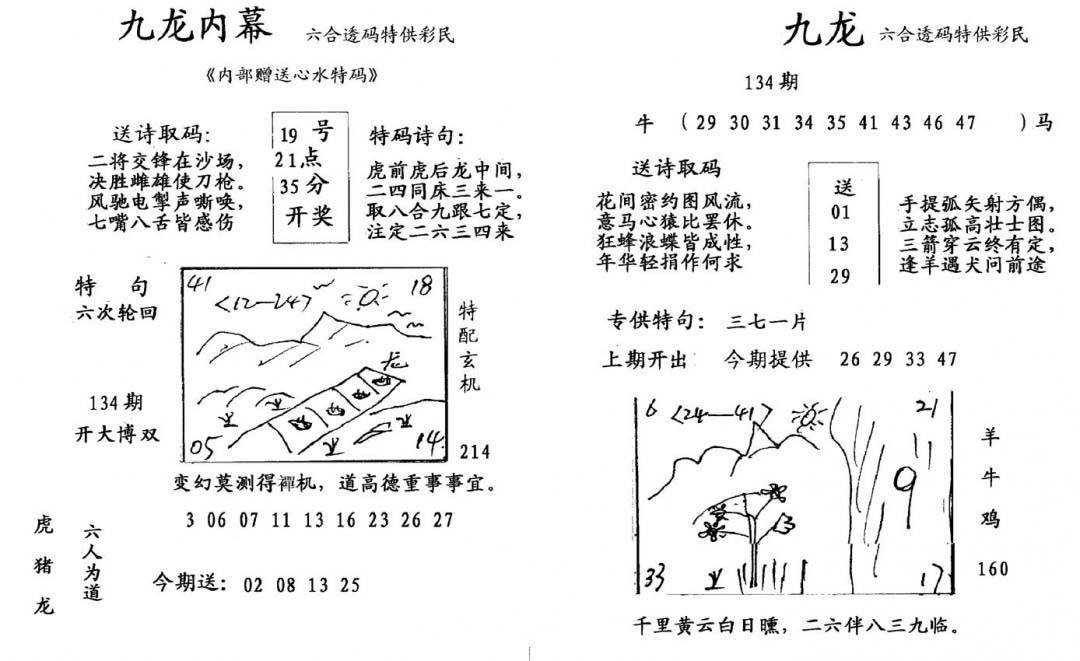 九龙内幕 六合透码特供彩民
《内部赠送心水特码》
送诗取码：
二将交锋在沙场，
决胜雌雄使刀枪。
风驰电掣声嘶唤，
七嘴八舌皆感伤
19 号
21点
35分
开奖
特码诗句：
虎前虎后龙中间，
二四同床三来一。
取八合九跟七定，
注定二六三四来
特 句
六次轮回
134期
开大博双
41
<12—24>
18
龙
05
14
特
配
玄
机
214
变幻莫测得禪机，道高德重事事宜。
3 06 07 11 13 16 23 26 27
虎
猪
龙
六人为道
今期送：02 08 13 25
九龙 六合透码特供彩民
134期
牛 （29 30 31 34 35 41 43 46 47 ）马
送诗取码
花间密约图风流，
意马心猿比罢休。
狂蜂浪蝶皆成性，
年华轻捐作何求
送
01
13
29
手提弧矢射方偶，
立志孤高壮士图。
三箭穿云终有定，
逢羊遇犬问前途
专供特句：三七一片
上期开出 今期提供 26 29 33 47
6
<24—41>
21
9
33
17
羊
牛
鸡
160
千里黄云白日曛，二六伴八三九临。